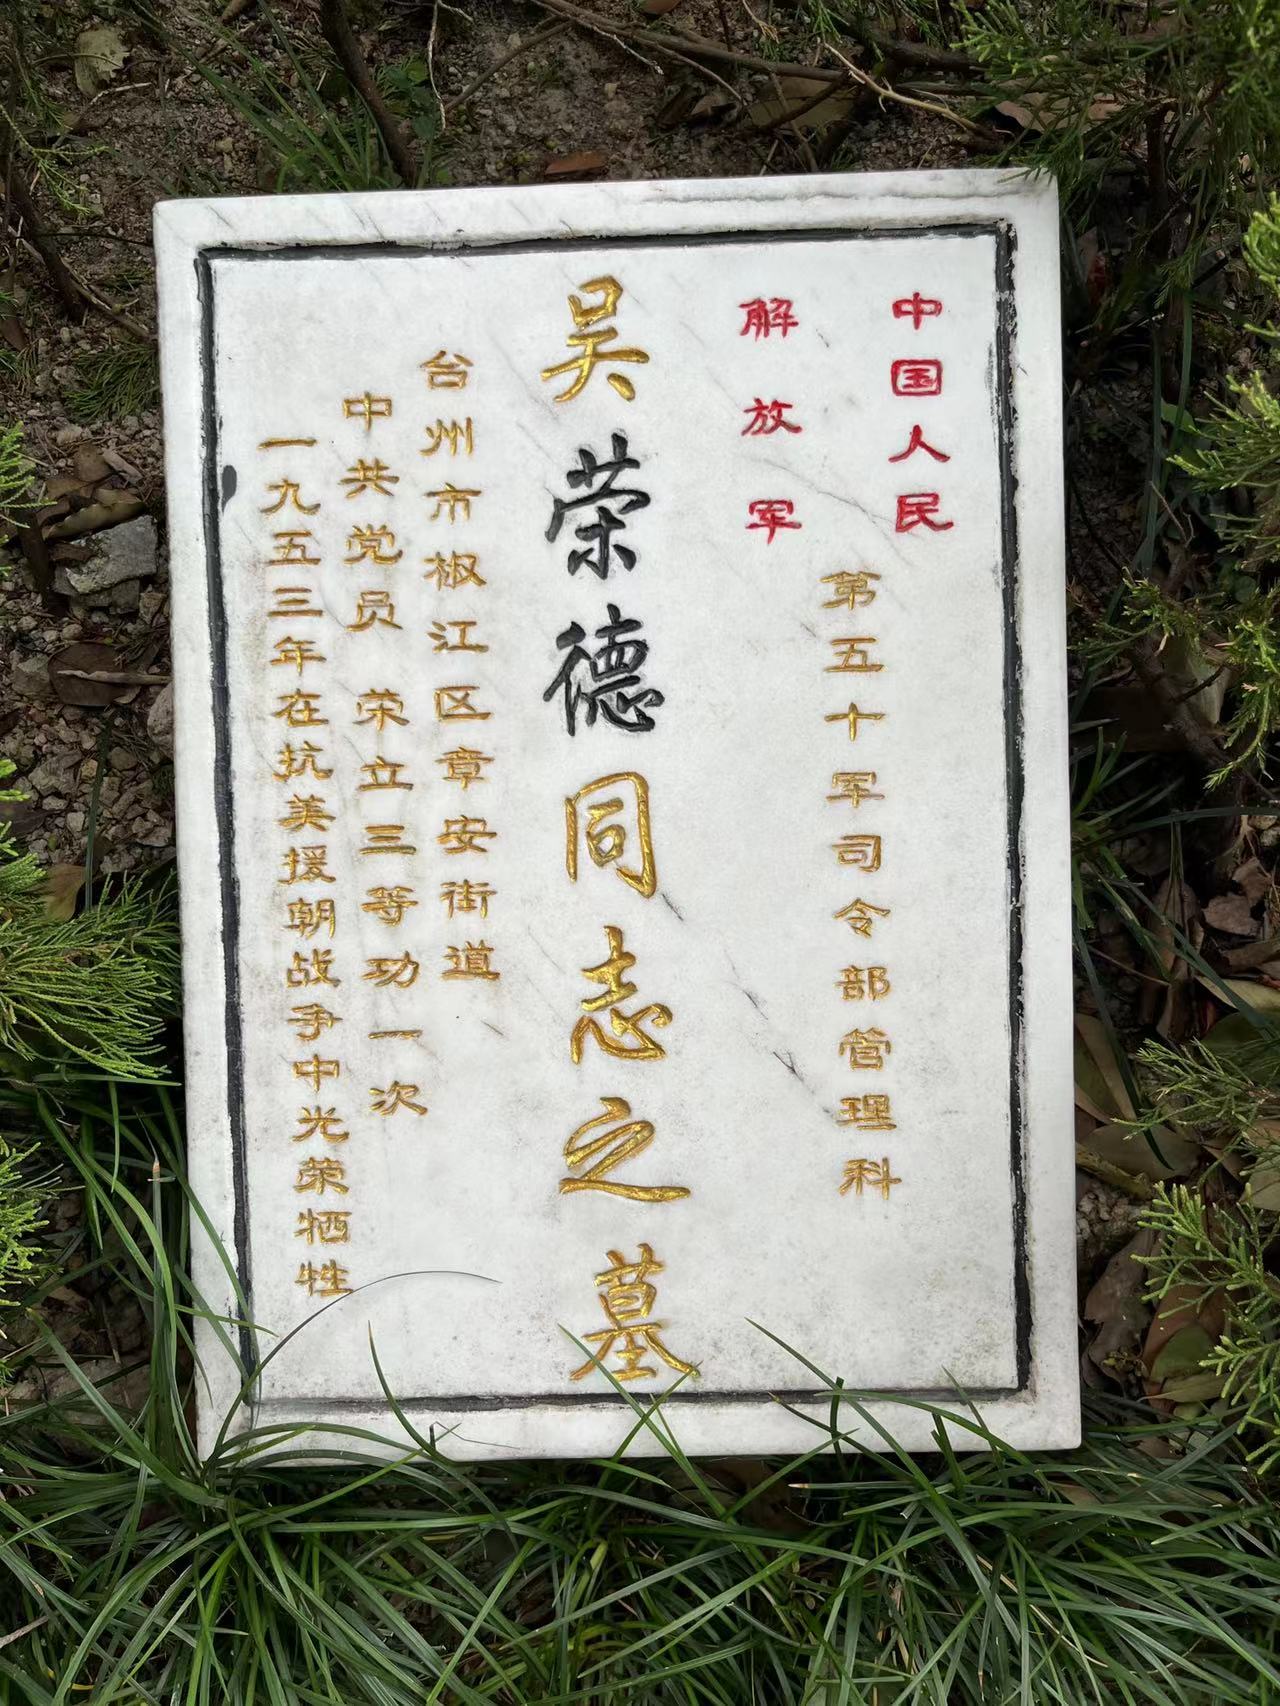 中国人民
解放军
第五十军司令部管理科
吴荣德同志之墓
台州市椒江区章安街道
中共党员 荣立三等功一次
一九五三年在抗美援朝战争中光荣牺牲